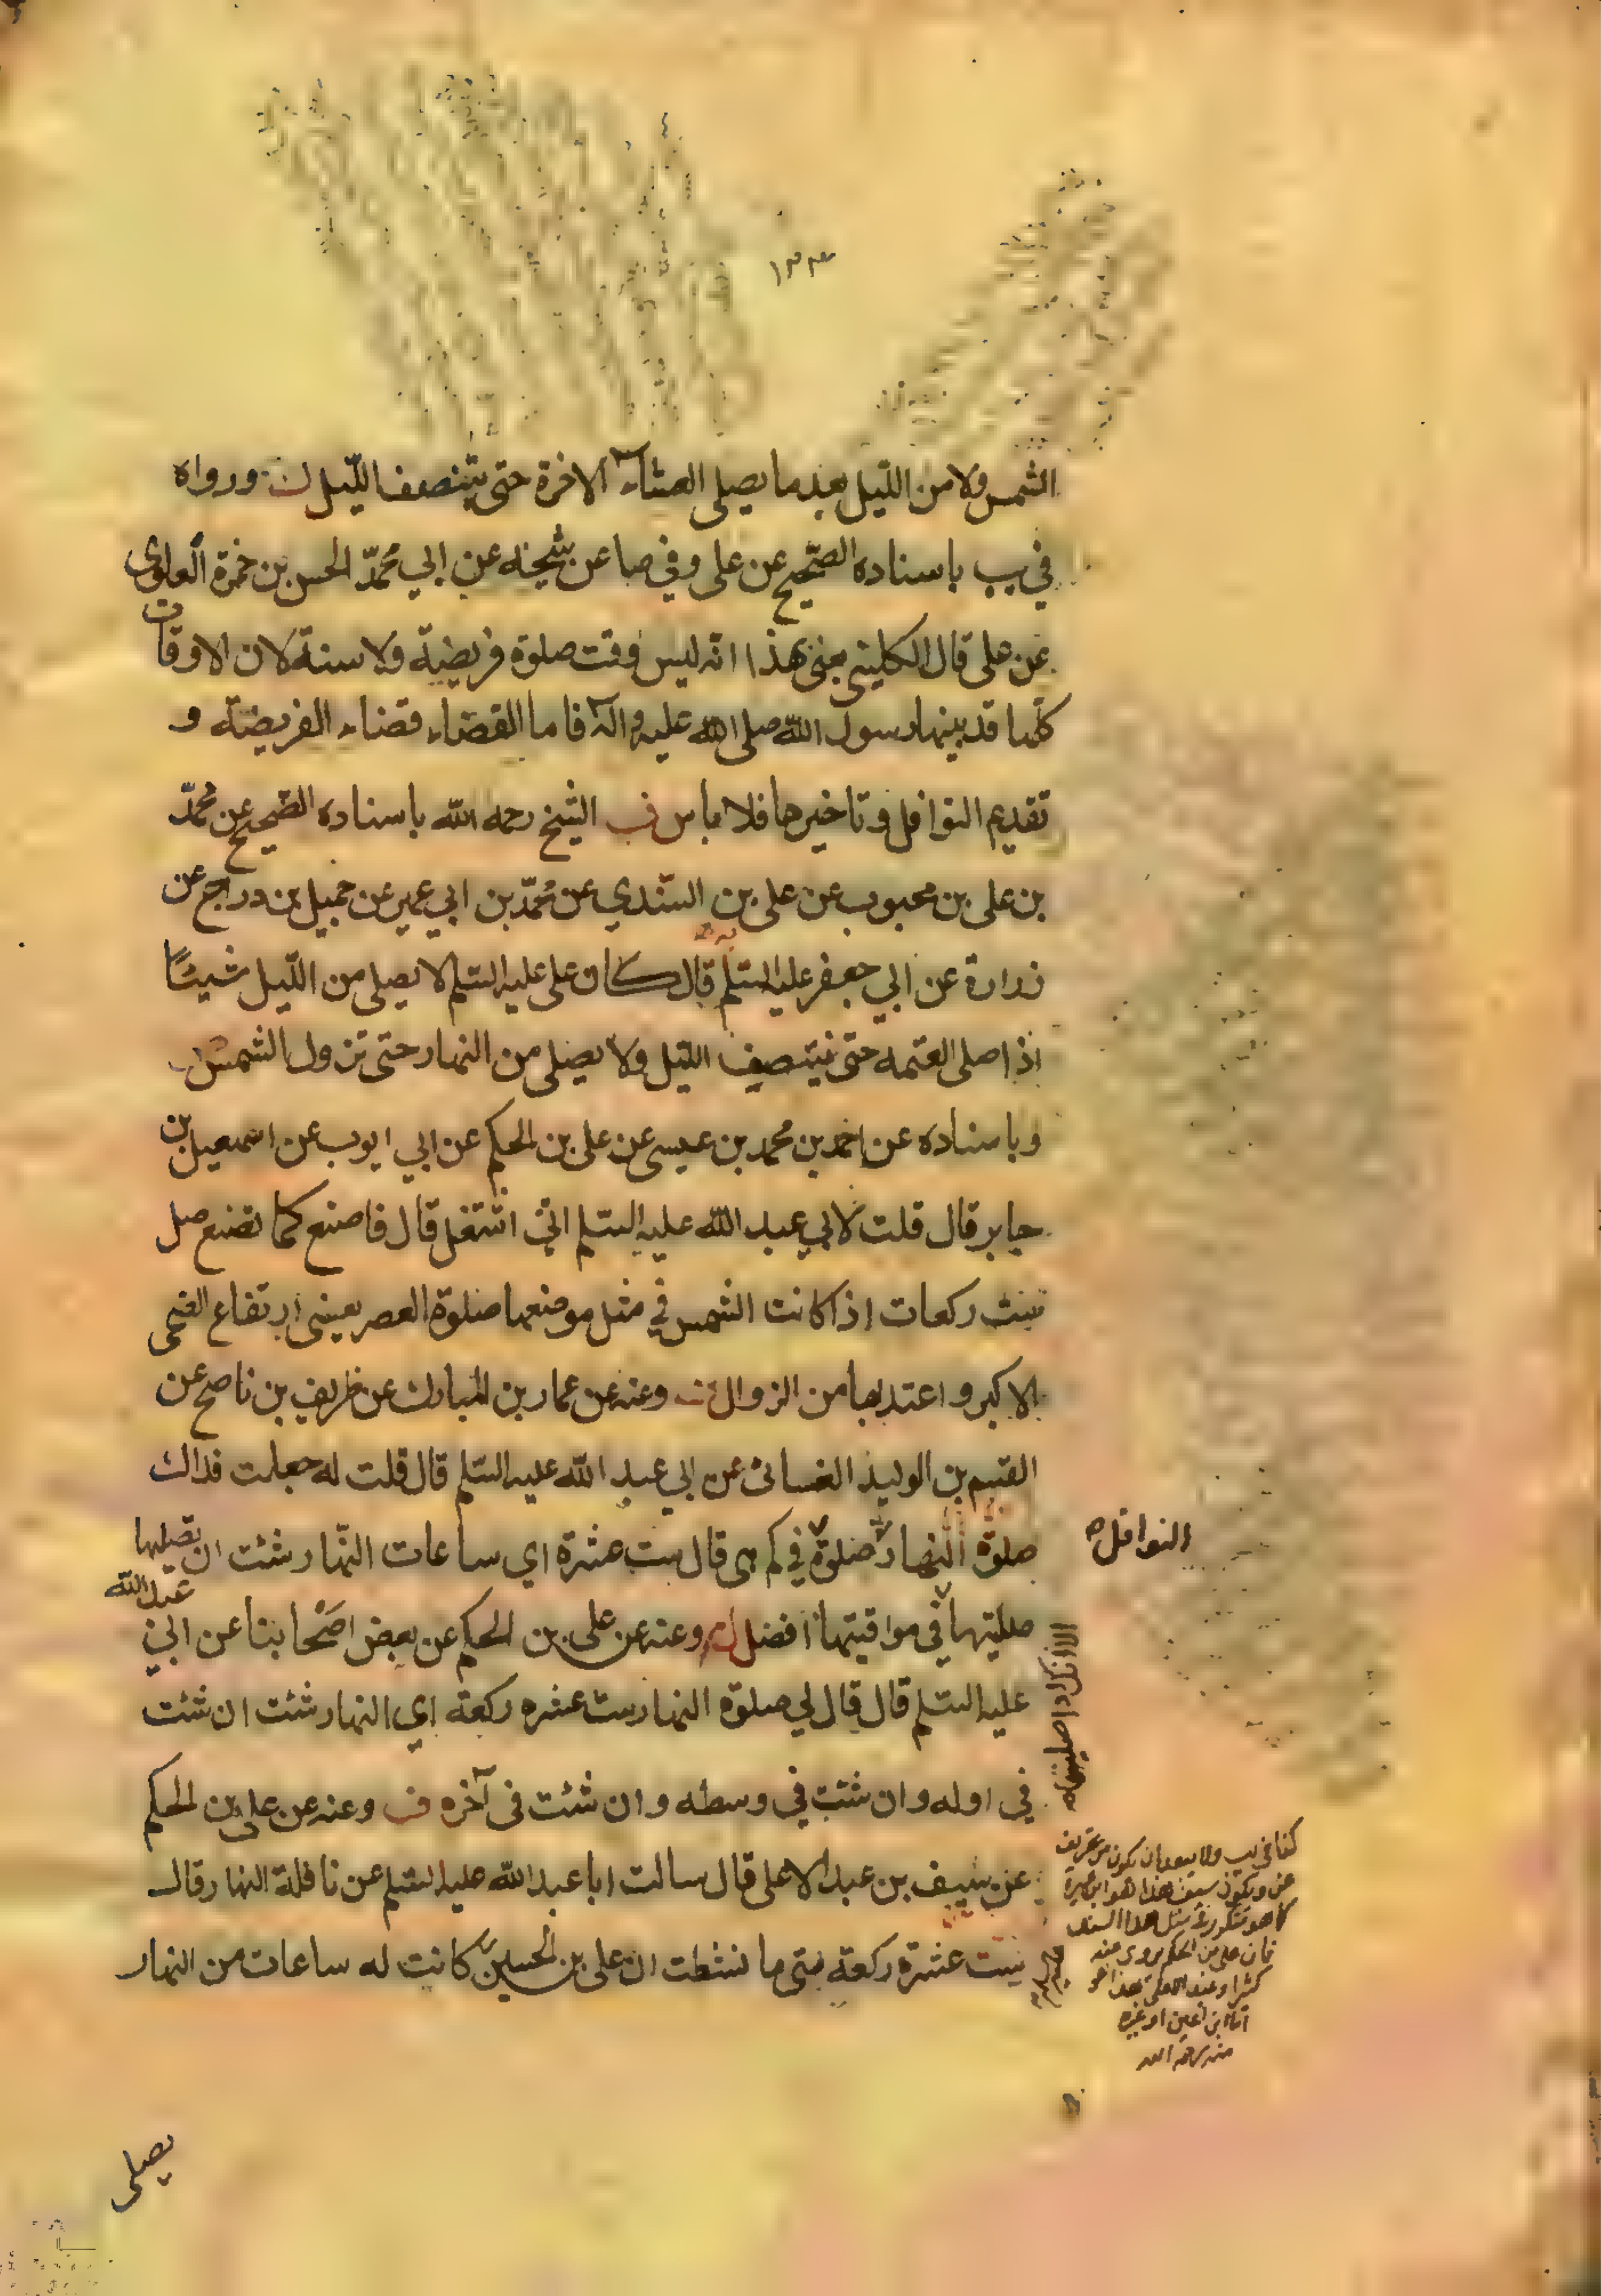 ١٣٣
الشمس ولا من اللّيل بعد ما يصلى العشاء الاخرة حتى ينتصف اللّيل ن ورواه
في يب باسناده الصّحيح عن على وفي صا عن شيخه عن ابي محمّد الحسن بن حمزة العلوى
عن على قال الكليني معنى هذا انه ليس وقت صلوة فريضة ولا سنة لان الاوقات
كلّها قد بينها رسول اللّه صلى اللّه عليه واله فاما القضاء قضاء الفريضة و
تقديم النوافل وتاخيرها فلا باس ف الشيخ رحمه اللّه باسناده الصّحيح عن محمّد
بن على بن محبوب عن على بن السّندي عن محمّد بن ابي عمير عن جميل بن دراج عن
زرارة عن ابي جعفر عليه السّلم قال كان على عليه السّلم لا يصلى من اللّيل شيئًا
اذا صلى العتمه حتى ينتصف اللّيل ولا يصلى من النهار حتى تزول الشمس
وباسناده عن احمد بن محمد بن عيسى عن على بن الحكم عن ابي ايوب عن اسمعيل بن
جابر قال قلت لابي عبد اللّه عليه السّلم انى اشتغل قال فاصنع كما نصنع صل
ست ركعات اذا كانت الشمس في مثل موضعها صلوة العصر يعينى ارتفاع الضحى
الاكبر واعتد بها من الزوال ف وعنه عن عمار بن المبارك عن ظريف بن ناصح عن
القسم بن الوليد الغسانى عن ابي عبد اللّه عليه السّلم قال قلت له جعلت فداك
صلوة النهار صلوة في كم هى قال ست عشرة اي ساعات النّهار شئت ان تصليها
النوافل
صليتها في مواقيتها افضل وعنه عن على بن الحكم عن بعض اصحابنا عن ابي عبد اللّه
الا انك اذا صليتها
عليه السّلم قال قال لي صلوة النهار ست عشره ركعة اي النهار شئت ان شئت
في اوله وان شئت في وسطه وان شئت في آخره ف وعنه عن على بن الحكم
عن سيف بن عبد الاعلى قال سالت ابا عبد اللّه عليه السّلم عن نافلة النهار قال
ستّ عشرة ركعة متى ما نشطت ان على بن الحسين كانت له ساعات من النهار
كذا في يب ولا يبعد ان يكون
عن ويكون سيف هذا هو ابن عميرة
كما هو متكرر في مثل هذا السند
فان على بن الحكم يروى عنه
كثيرا وعبد الاعلى هذا هو
اما ابن اعين او غيره
منه رحمه اللّه
يصلى